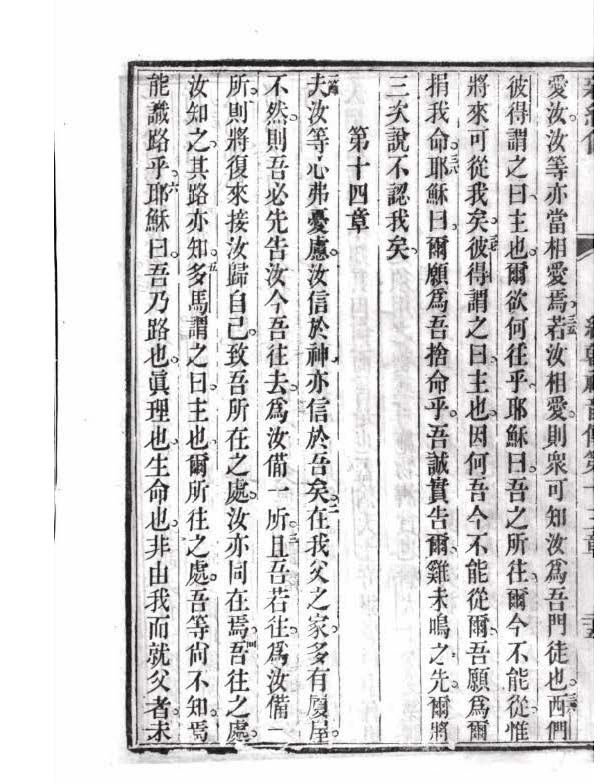 愛汝汝等亦當相愛焉三五若汝相愛則衆可知汝爲吾門徒也三六西們
彼得謂之曰主也爾欲何往乎耶穌曰吾之所往爾今不能從惟
將來可從我矣三七彼得謂之曰主也因何吾今不能從爾吾願爲爾
捐我命三八耶穌曰爾願爲吾捨命乎吾誠實告爾雞未鳴之先爾將
三次說不認我矣
第十四章
夫汝等心弗憂慮汝信於神亦信於吾矣二在我父之家多有廈屋
不然則吾必先告汝今吾往去爲汝備一所三且吾若往爲汝備一
所則將復來接汝歸自己致吾所在之處汝亦同在焉四吾往之處
汝知之其路亦知五多馬謂之曰主也爾所往之處吾等尙不知焉
能識路乎六耶穌曰吾乃路也眞理也生命也非由我而就父者未